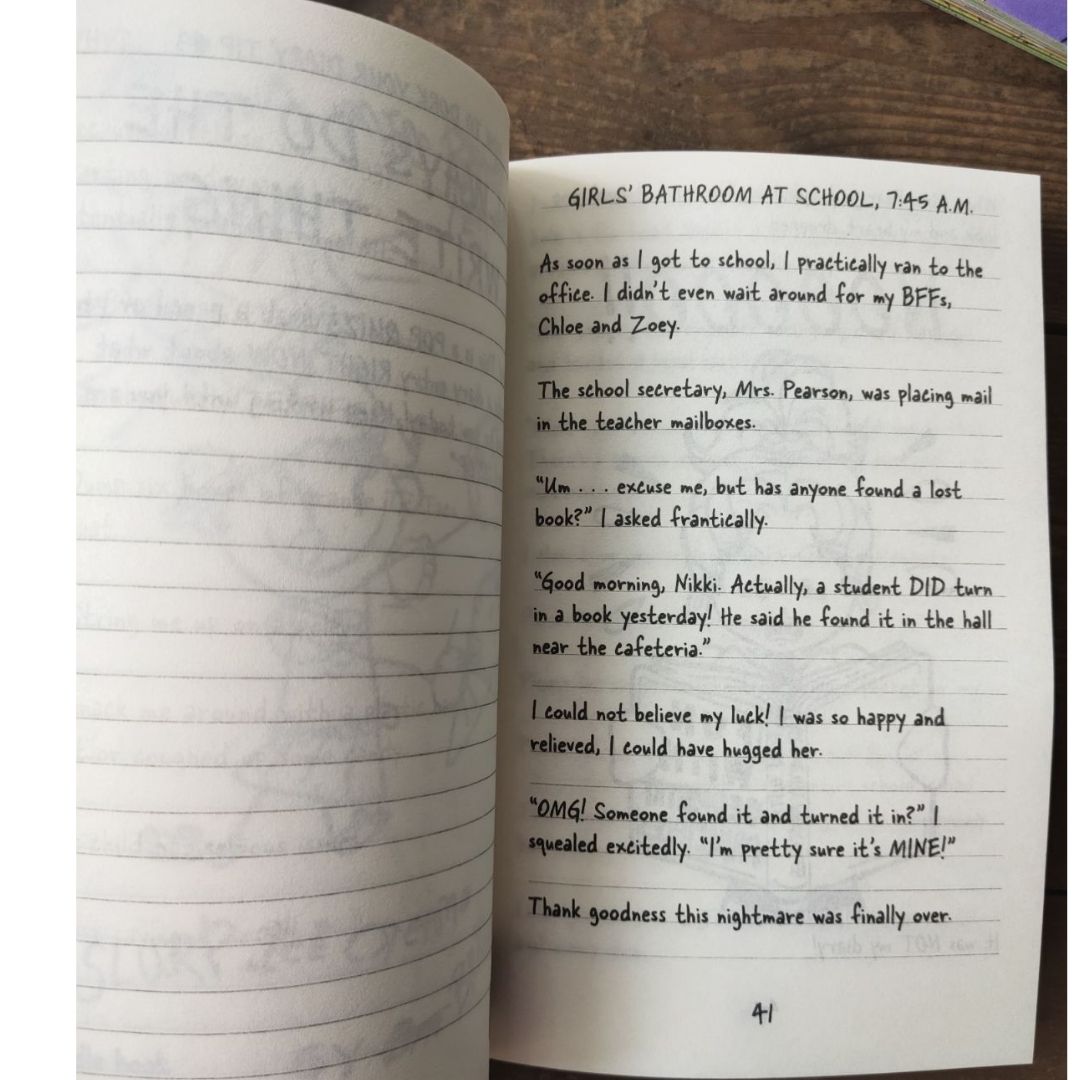 GIRLS' BATHROOM AT SCHOOL, 7:45 A.M.
As soon as I got to school, I practically ran to the
office. I didn't even wait around for my BFFs,
Chloe and Zoey.
The school secretary, Mrs. Pearson, was placing mail
in the teacher mailboxes.
"Um . . . excuse me, but has anyone found a lost
book?" I asked frantically.
"Good morning, Nikki. Actually, a student DID turn
in a book yesterday! He said he found it in the hall
near the cafeteria."
I could not believe my luck! I was so happy and
relieved, I could have hugged her.
"OMG! Someone found it and turned it in?" I
squealed excitedly. "I'm pretty sure it's MINE!"
Thank goodness this nightmare was finally over.
41